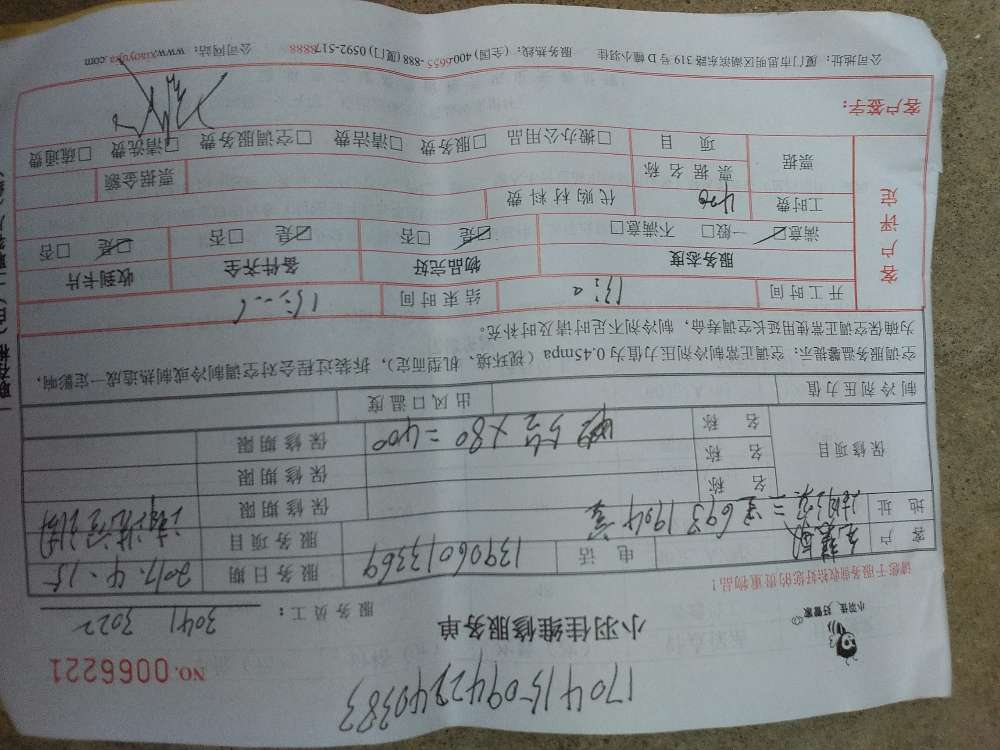 1704150942240383
NO. 0066221
小羽佳维修服务单
小羽佳,好管家
服务员工: 3041 3022
请您于服务前收拾好您的贵重物品!
客户 电话 13906013369 服务日期 2017.4.15
地址 693 1904室 服务项目 清洗空调
保修项目 名称 保修期限
名称 保修期限
名称 5台×80=400 保修期限
制冷剂压力值 出风口温度
空调服务温馨提示:空调正常制冷剂压力值为0.45mpa(视环境、机型而定),拆装过程会对空调制冷或制热造成一定影响,
为确保空调正常使用延长空调寿命,制冷剂不足时请及时补充。
客户评定
开工时间 结束时间
服务态度 物品完好 备件齐全 收到卡片
满意☑ 一般□ 不满意□ ☑是 □否 ☑是 □否 ☑是 □否
工时费 400 代购材料费
票据 票据名称 票据金额
项目 □搬办公用品 □服务费 □清洁费 □空调服务费 □清洗费 □疏通费
客户签字:
公司地址:厦门市思明区湖滨东路319号D幢小羽佳 服务热线:(全国)400-6655-888 (厦门)0592-5178888 公司网站:www.xiaoyujia.com